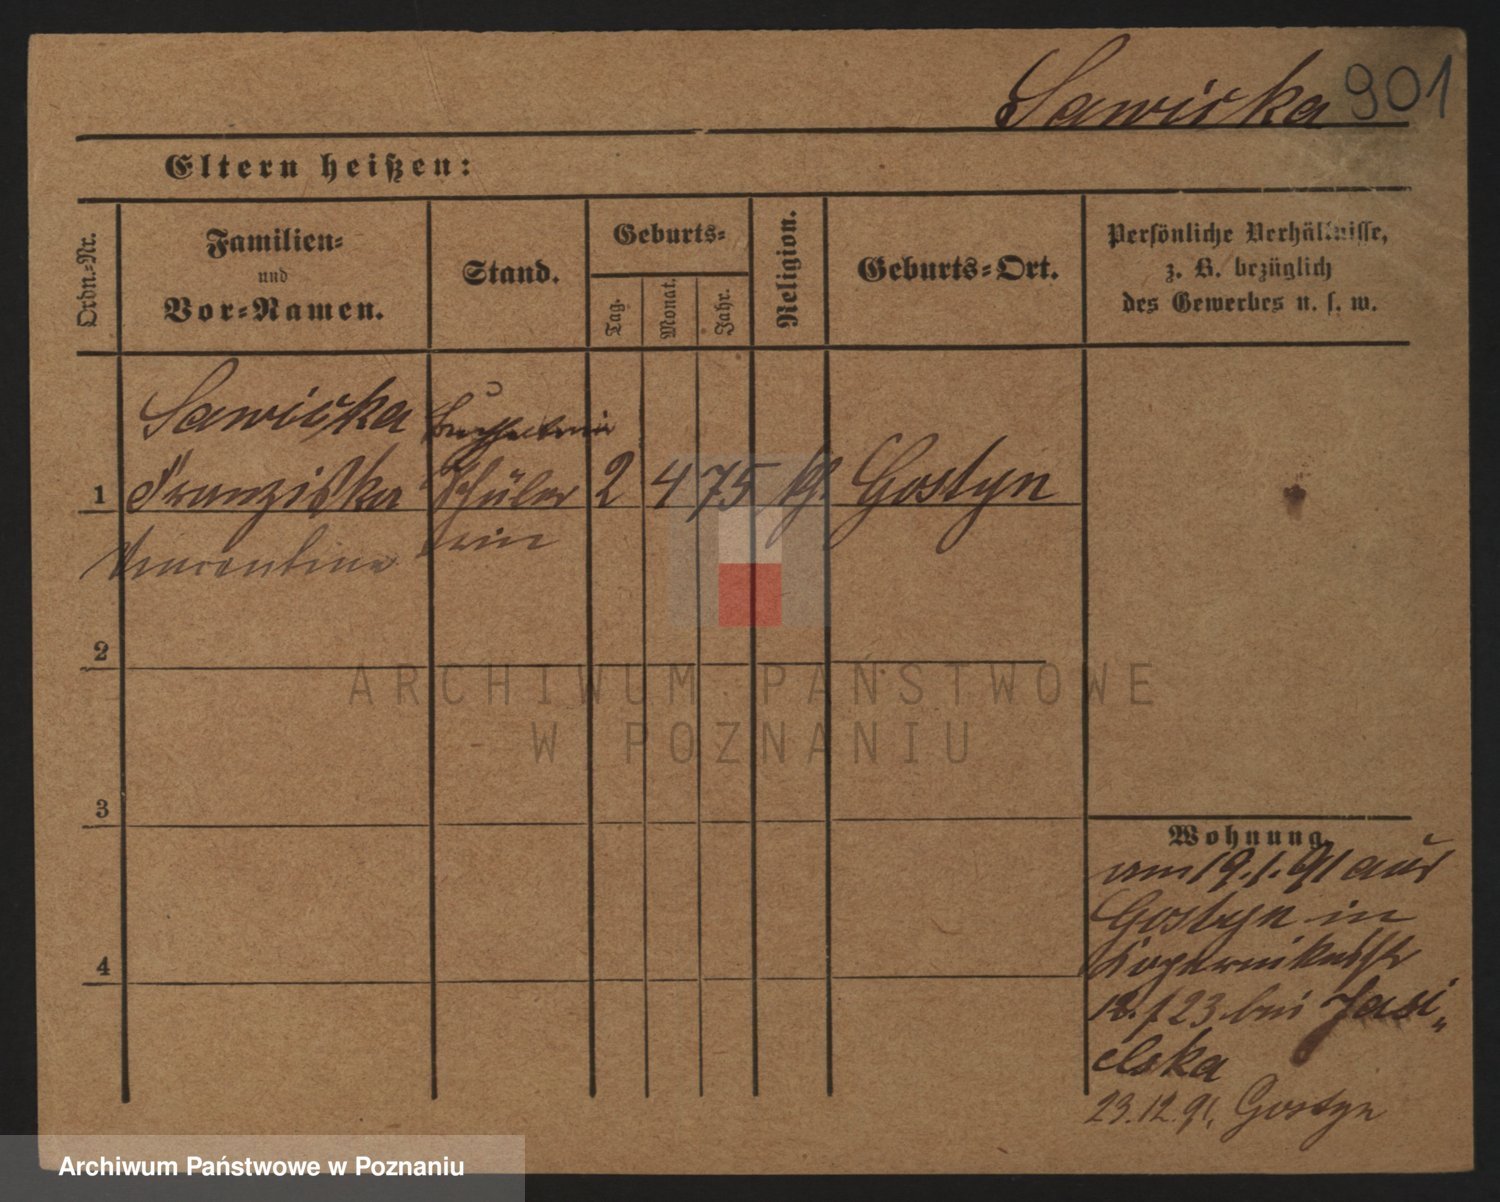 Sawicka 901
Eltern heißen:
Ordn.-Nr.
Familien-
und
Vor-Namen.
Stand.
Geburts-
Tag.
Monat.
Jahr.
Religion.
Geburts-Ort.
Persönliche Verhältnisse,
z. B. bezüglich
des Gewerbes u. s. w.
Sawicka
1 Franziska Schüler 2 4 75 Gostyn
Vincentina rin
2
3
4
Wohnung.
vom 19.1.91 aus
Gostyn in
Kopernikusstr
12./23 bei Jasi„
elska
23.12.91. Gostyn
ARCHIWUM PAŃSTWOWE
W POZNANIU
Archiwum Państwowe w Poznaniu